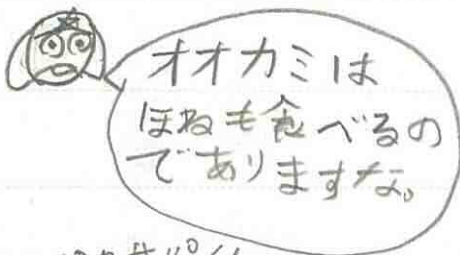 オオカミは
ほねも食べるの
でありますな。